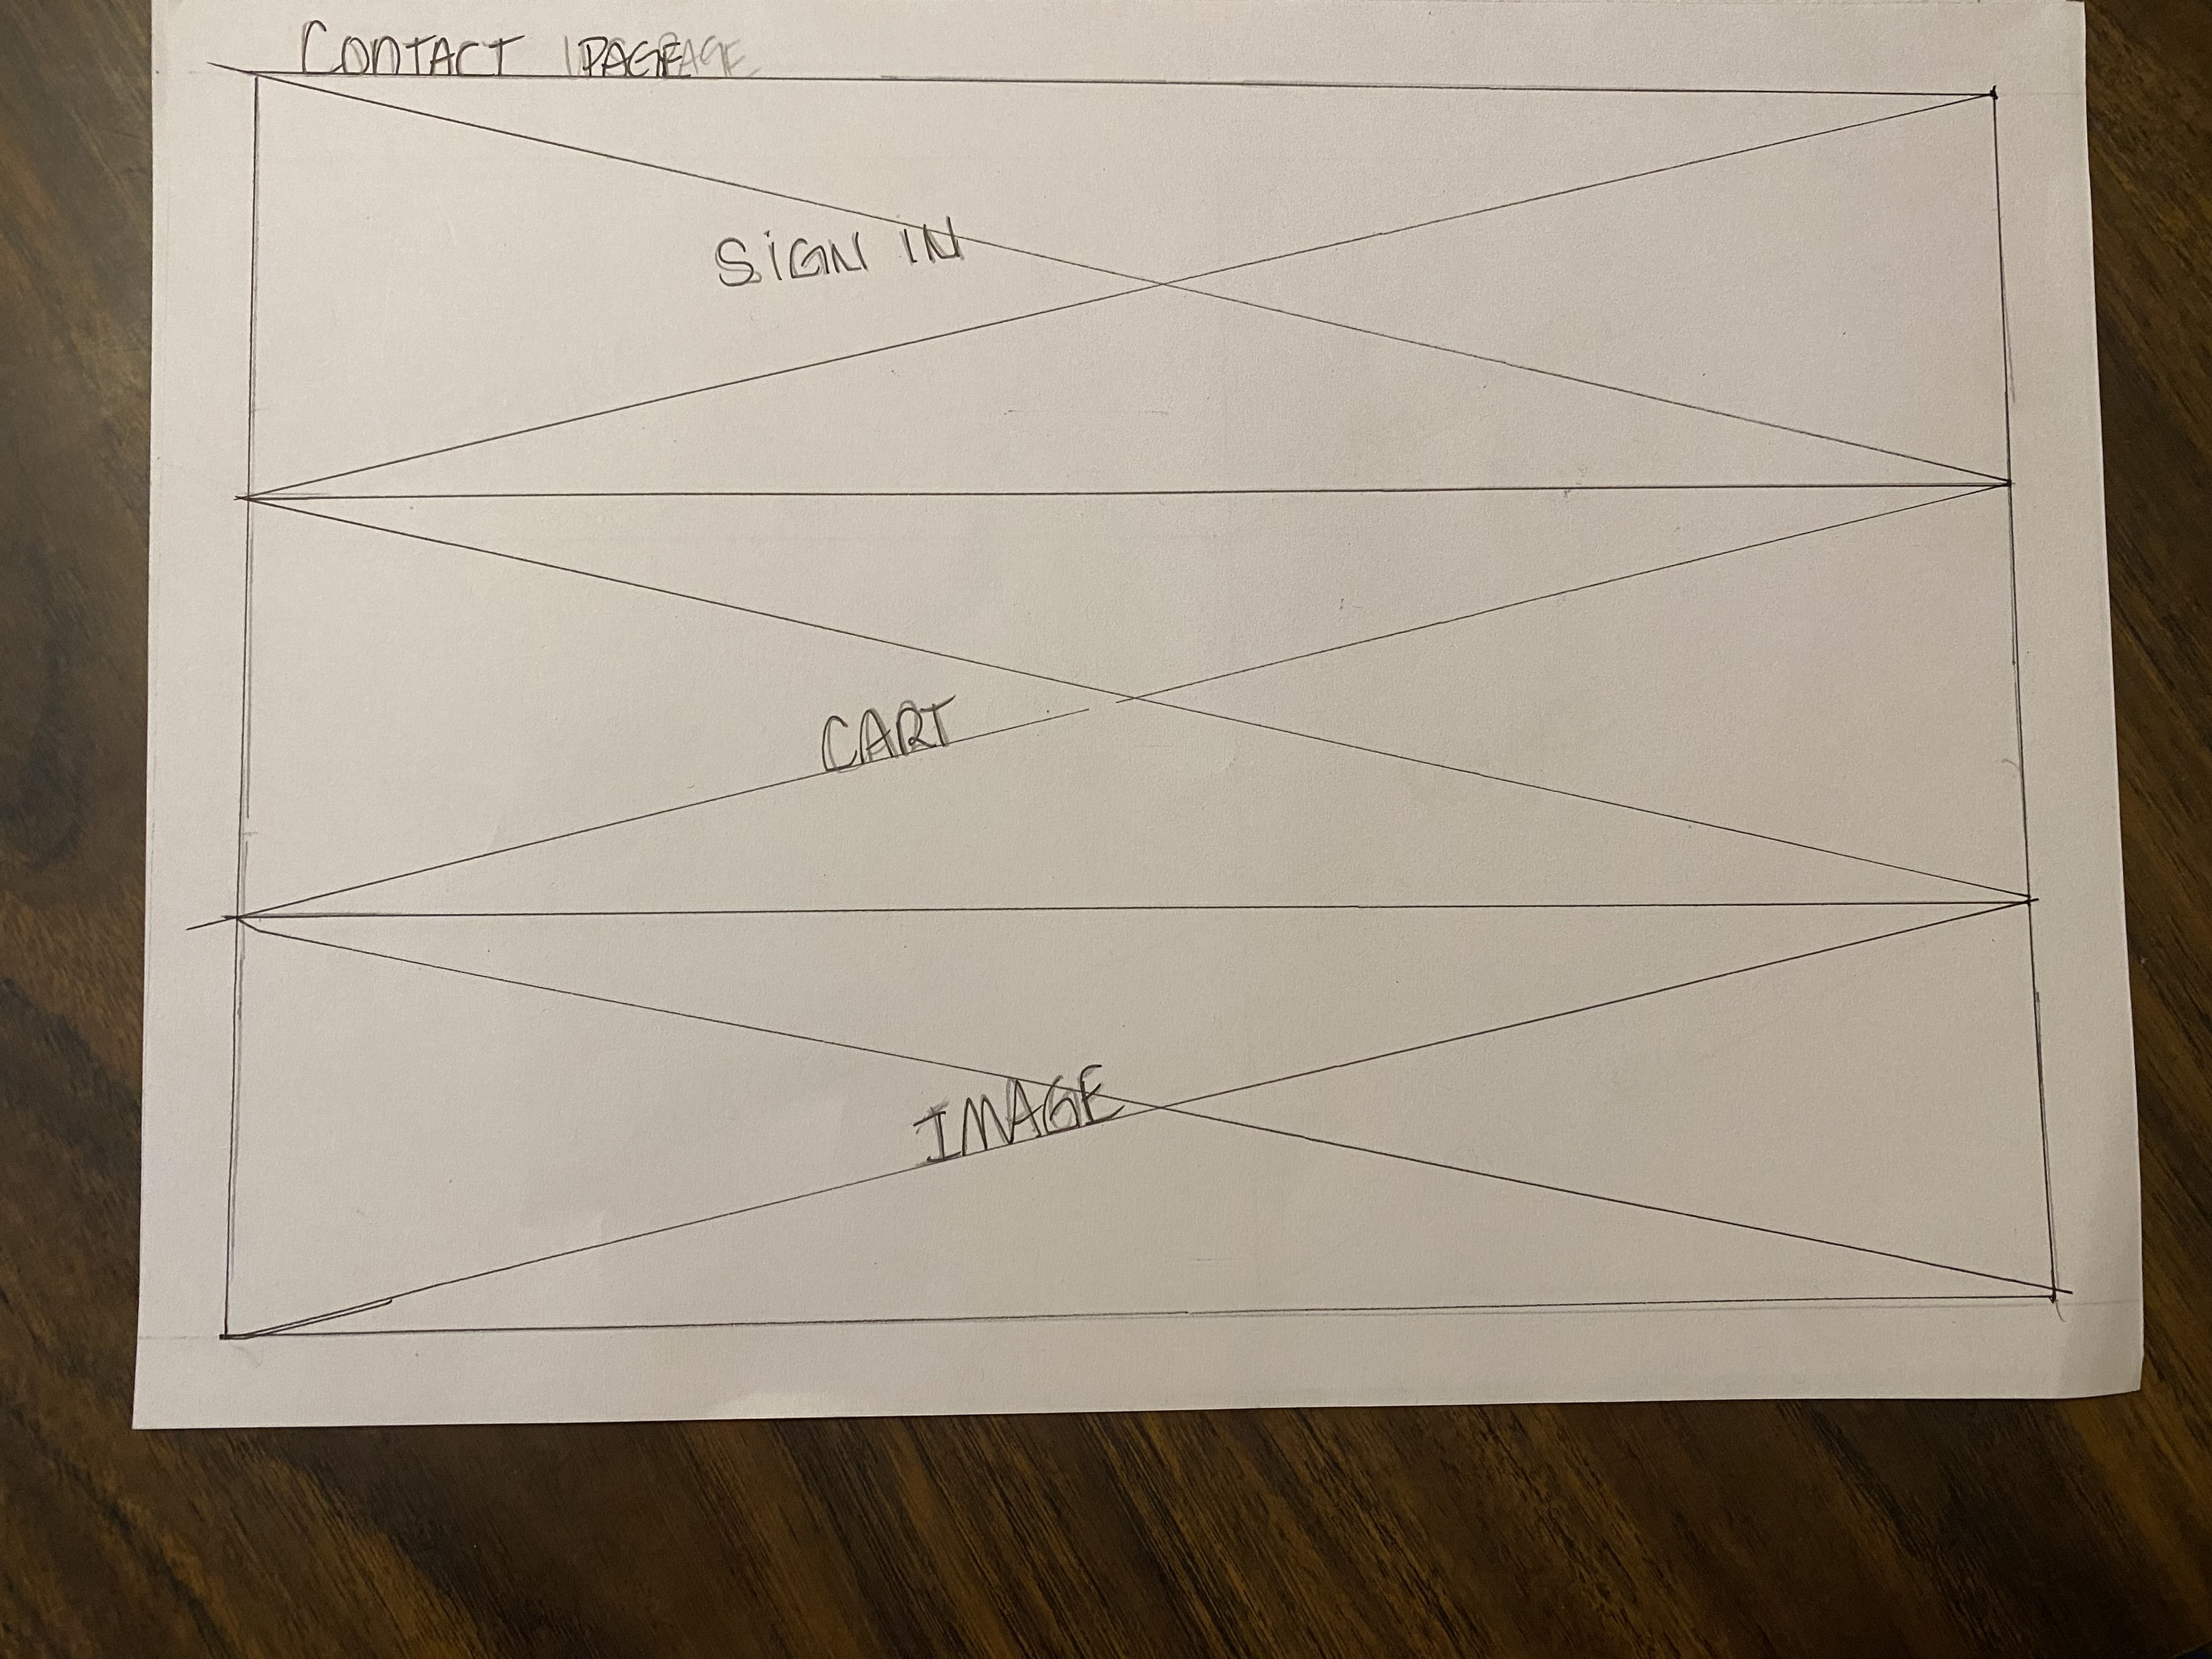 CONTACT PAGE
SIGN IN
CART
IMAGE